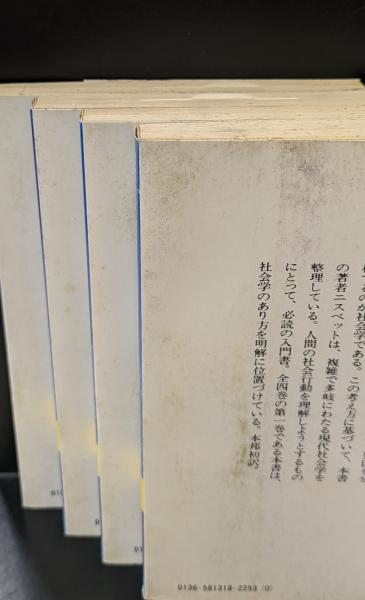 するのが社会学である。この考え方に基づいて、本書
の著者ニスベットは、複雑で多岐にわたる現代社会学を
整理している。人間の社会行動を理解しようとするもの
にとって、必読の入門書。全四巻の第一巻である本書は、
社会学のあり方を明解に位置づけている。本邦初訳。
0136-581318-2253 (0)